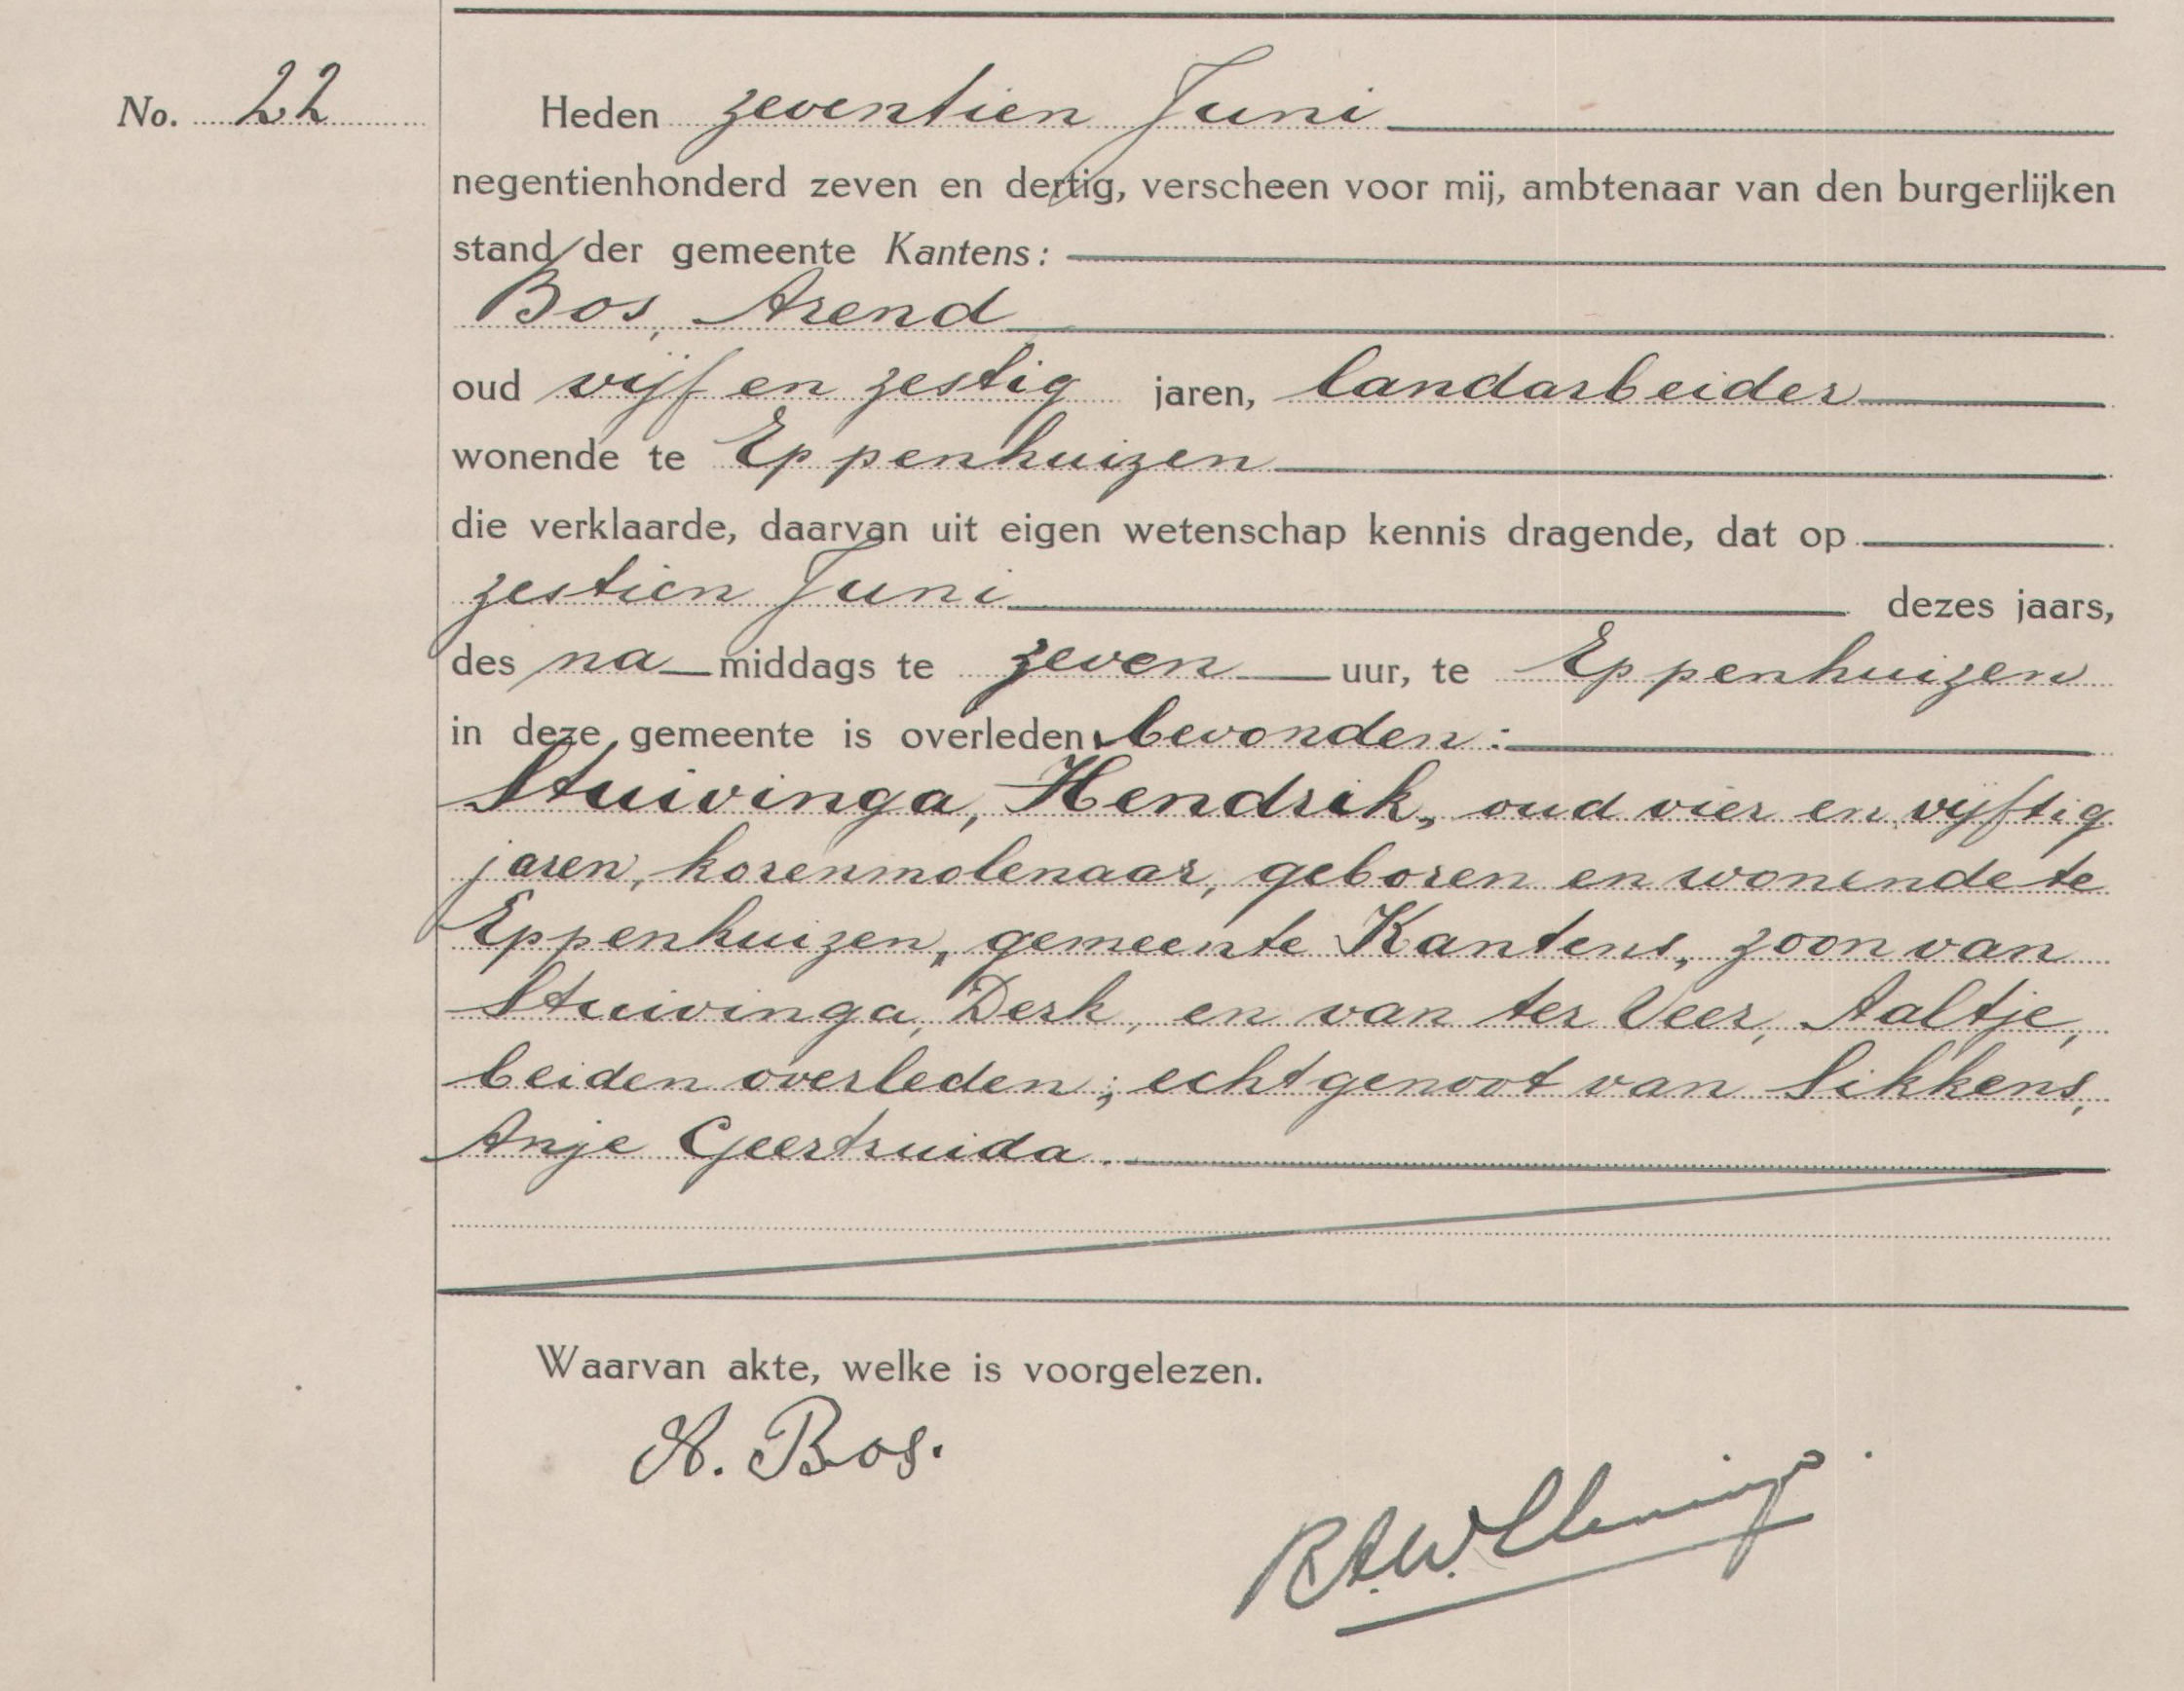 No. 22
Heden zeventien Juni
negentienhonderd zeven en dertig, verscheen voor mij, ambtenaar van den burgerlijken
stand der gemeente Kantens:
Bos, Arend
oud vijf en zestig jaren, landarbeider
wonende te Eppenhuizen
die verklaarde, daarvan uit eigen wetenschap kennis dragende, dat op
zestien Juni dezes jaars,
des na middags te zeven uur, te Eppenhuizen
in deze gemeente is overleden bevonden:
Stuivinga, Hendrik, oud vier en vijftig
jaren, korenmolenaar, geboren en wonende te
Eppenhuizen, gemeente Kantens, zoon van
Stuivinga, Derk, en van ter Veer, Aaltje,
beiden overleden; echtgenoot van Sikkens,
Anje Geertruida.
Waarvan akte, welke is voorgelezen.
A. Bos.